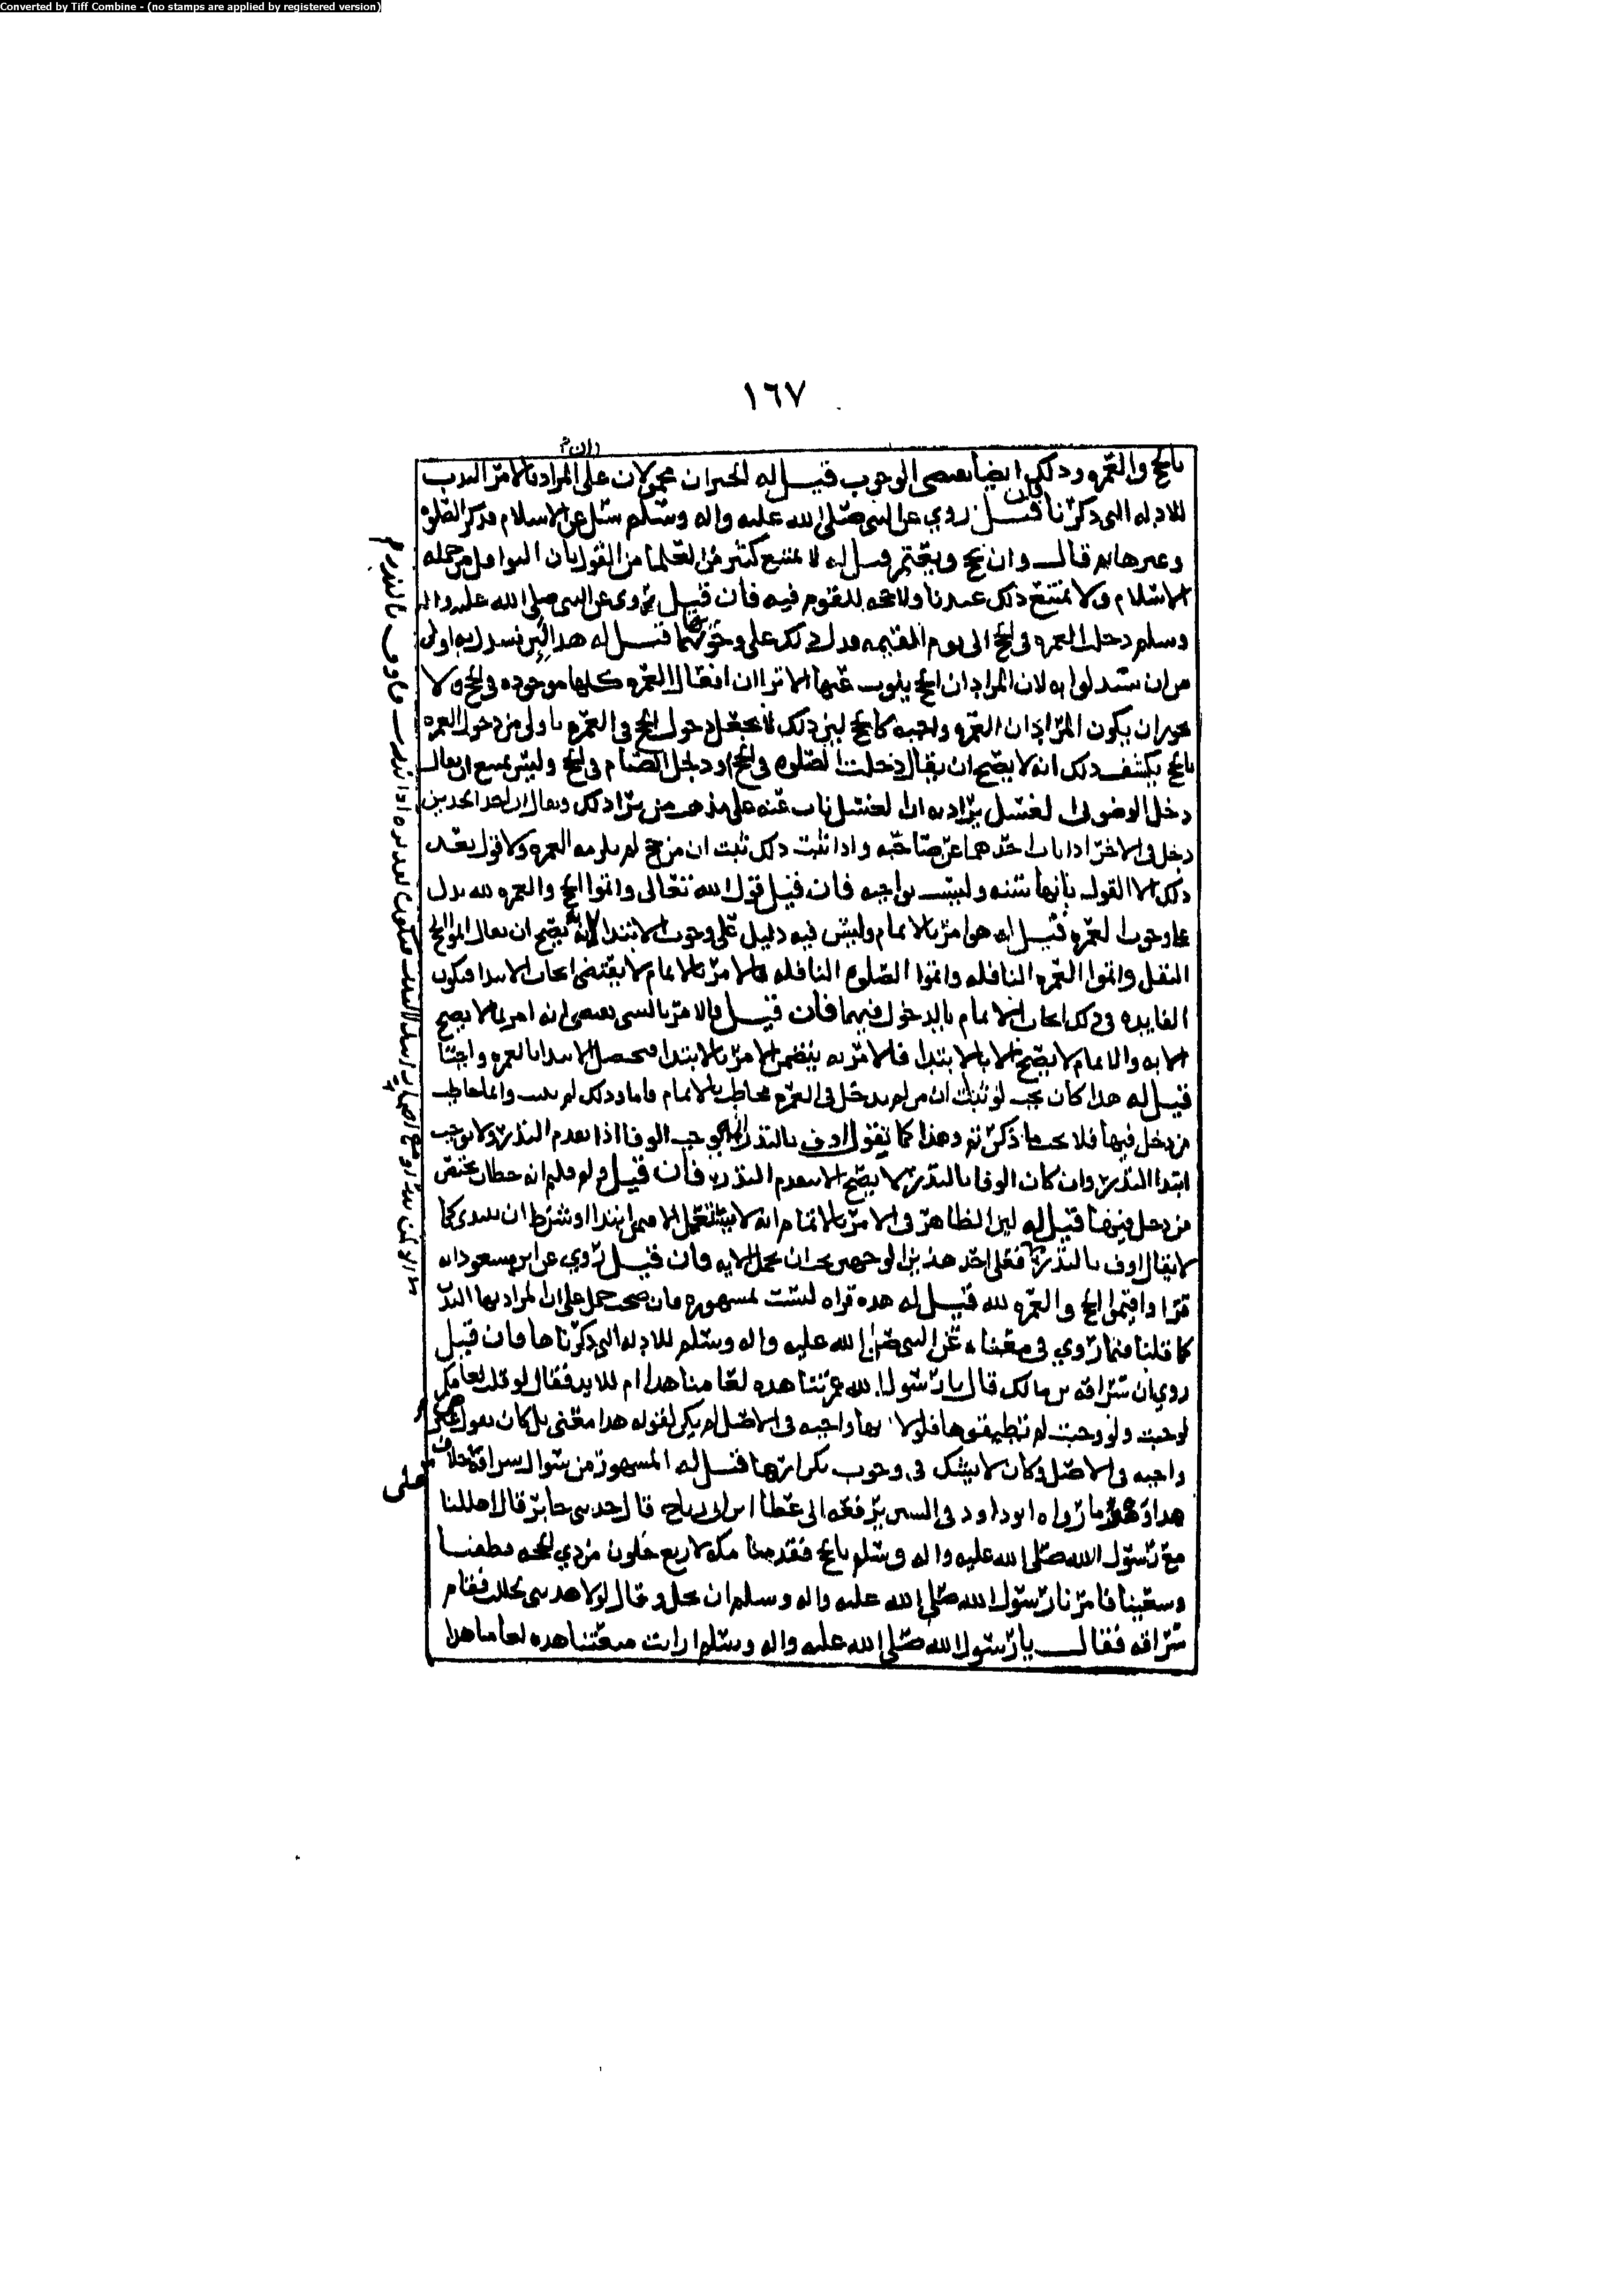 Converted by Tiff Combine - (no stamps are applied by registered version)
١٦٧
بالحج والعمره وذلك ايضا يقتضى الوجوب قيل له الخبران محمولان على المراد بالامر الندب
للادله التى ذكرنا فان قيل روي عن النبى صلى الله عليه واله وسلم سئل عن الاسلام فذكر الصلوه
وغيرها ثم قال وان تحج وتعتمر قيل له لا يمتنع كثير من العلما من القول بان النوافل من جمله
الاسلام ولا يمتنع ذلك عندنا ولا حجه للقوم فيه فان قيل روى عن النبى صلى الله عليه واله
وسلم دخلت العمره فى الحج الى يوم القيمه فدل ذلك على وجوبها قيل له هذا لان نستدل به اولى
من ان تستدلوا به لان المراد ان الحج ينوب عنها الا ترا ان افعال العمره كلها موجوده فى الحج ولا
يجوز ان يكون المراد ان العمره واجبه كالحج ليس ذلك لا يجعل دخول الحج فى العمره باولى من دخول العمره
بالحج يكشف ذلك انه لا يصح ان يقال دخلت الصلوه فى الحج او دخل الصيام فى الحج وليس يمتنع ان يقال
دخل الوضو فى الغسل يراد به ان الغسل ناب عنه على مذهب من يرا ذلك ويقال ان احد الحدين
دخل فى الاخر اذا ناب احدهما عن صاحبه واذا ثبت ذلك ثبت ان من حج لم يلزمه العمره ولا قول بعد
ذلك الا القول بانها سنه وليست بواجبه فان قيل قول الله تعالى واتموا الحج والعمره لله يدل
على وجوب العمره قيل له هو امر بالاتمام وليس فيه دليل على وجوب الابتدا لانه يصح ان يقال اتموا الحج
النفل واتموا العمره النافله واتموا الصلوه النافله فالامر بالاتمام لا يقتضى ايجاب الابتدا فيكون
الفايده فى ذلك ايجاب الاتمام بالدخول فيهما فان قيل فالامر بالشى يقتضى انه امر بما لا يصح
الا به والاتمام لا يصح الا بالابتدا فالامر به يتضمن الامر بالابتدا فيحصل الابتدا بالعمره واجبا
قيل له هذا كان يجب لو ثبت ان من لم يدخل فى العمره مخاطب بالاتمام فاما وذلك لم يثبت وانما خاطب
من دخل فيها فلا يجب ما ذكرتم وهذا كما يقول اوف بالنذر انه يوجب الوفا اذا تقدم النذر ولا يوجب
ابتدا النذر وان كان الوفا بالنذر لا يصح الا بتقدم النذر فان قيل ولم قلتم انه خطاب يختص
من دخل فيها قيل له ليس الظاهر فى الامر بالاتمام انه لا يستعمل الا فيمن ابتدا او شرط ان يبتدى كما
لا يقال اوف بالنذر فعلى احد هذين الوجهين يجب ان تحمل الايه فان قيل روي عن ابن مسعود انه
قرا واقيموا الحج والعمره لله قيل له هذه قراه ليست بمشهوره فان صحت حمل على ان المراد بها الندب
كما قلنا فيما روي فى معناه عن النبى صلى الله عليه واله وسلم للادله التى ذكرناها فان قيل
روي ان سراقه بن مالك قال يا رسول الله عمرتنا هذه لعامنا هذا ام للابد فقال لو قلت لعامكم
لوجبت ولو وجبت لم تطيقوها فلولا انها واجبه فى الاصل لم يكن لقوله هذا معنى بل كان يقول
واجبه فى الاصل وكان لا يشك فى وجوب تكرارها قيل له المشهور من سوال سراقه خلاف
هذا وهو ما رواه ابو داود فى السنن يرفعه الى عطا ابن ابى رباح قال حدثنى جابر قال اهللنا
مع رسول الله صلى الله عليه واله وسلم بالحج فقدمنا مكه لاربع خلون من ذي الحجه فطفنا
وسعينا فامرنا رسول الله صلى الله عليه واله وسلم ان نحل وقال لولا هديى لحللت فقام
سراقه فقال يا رسول الله صلى الله عليه واله وسلم ارايت متعتنا هذه لعامنا هذا